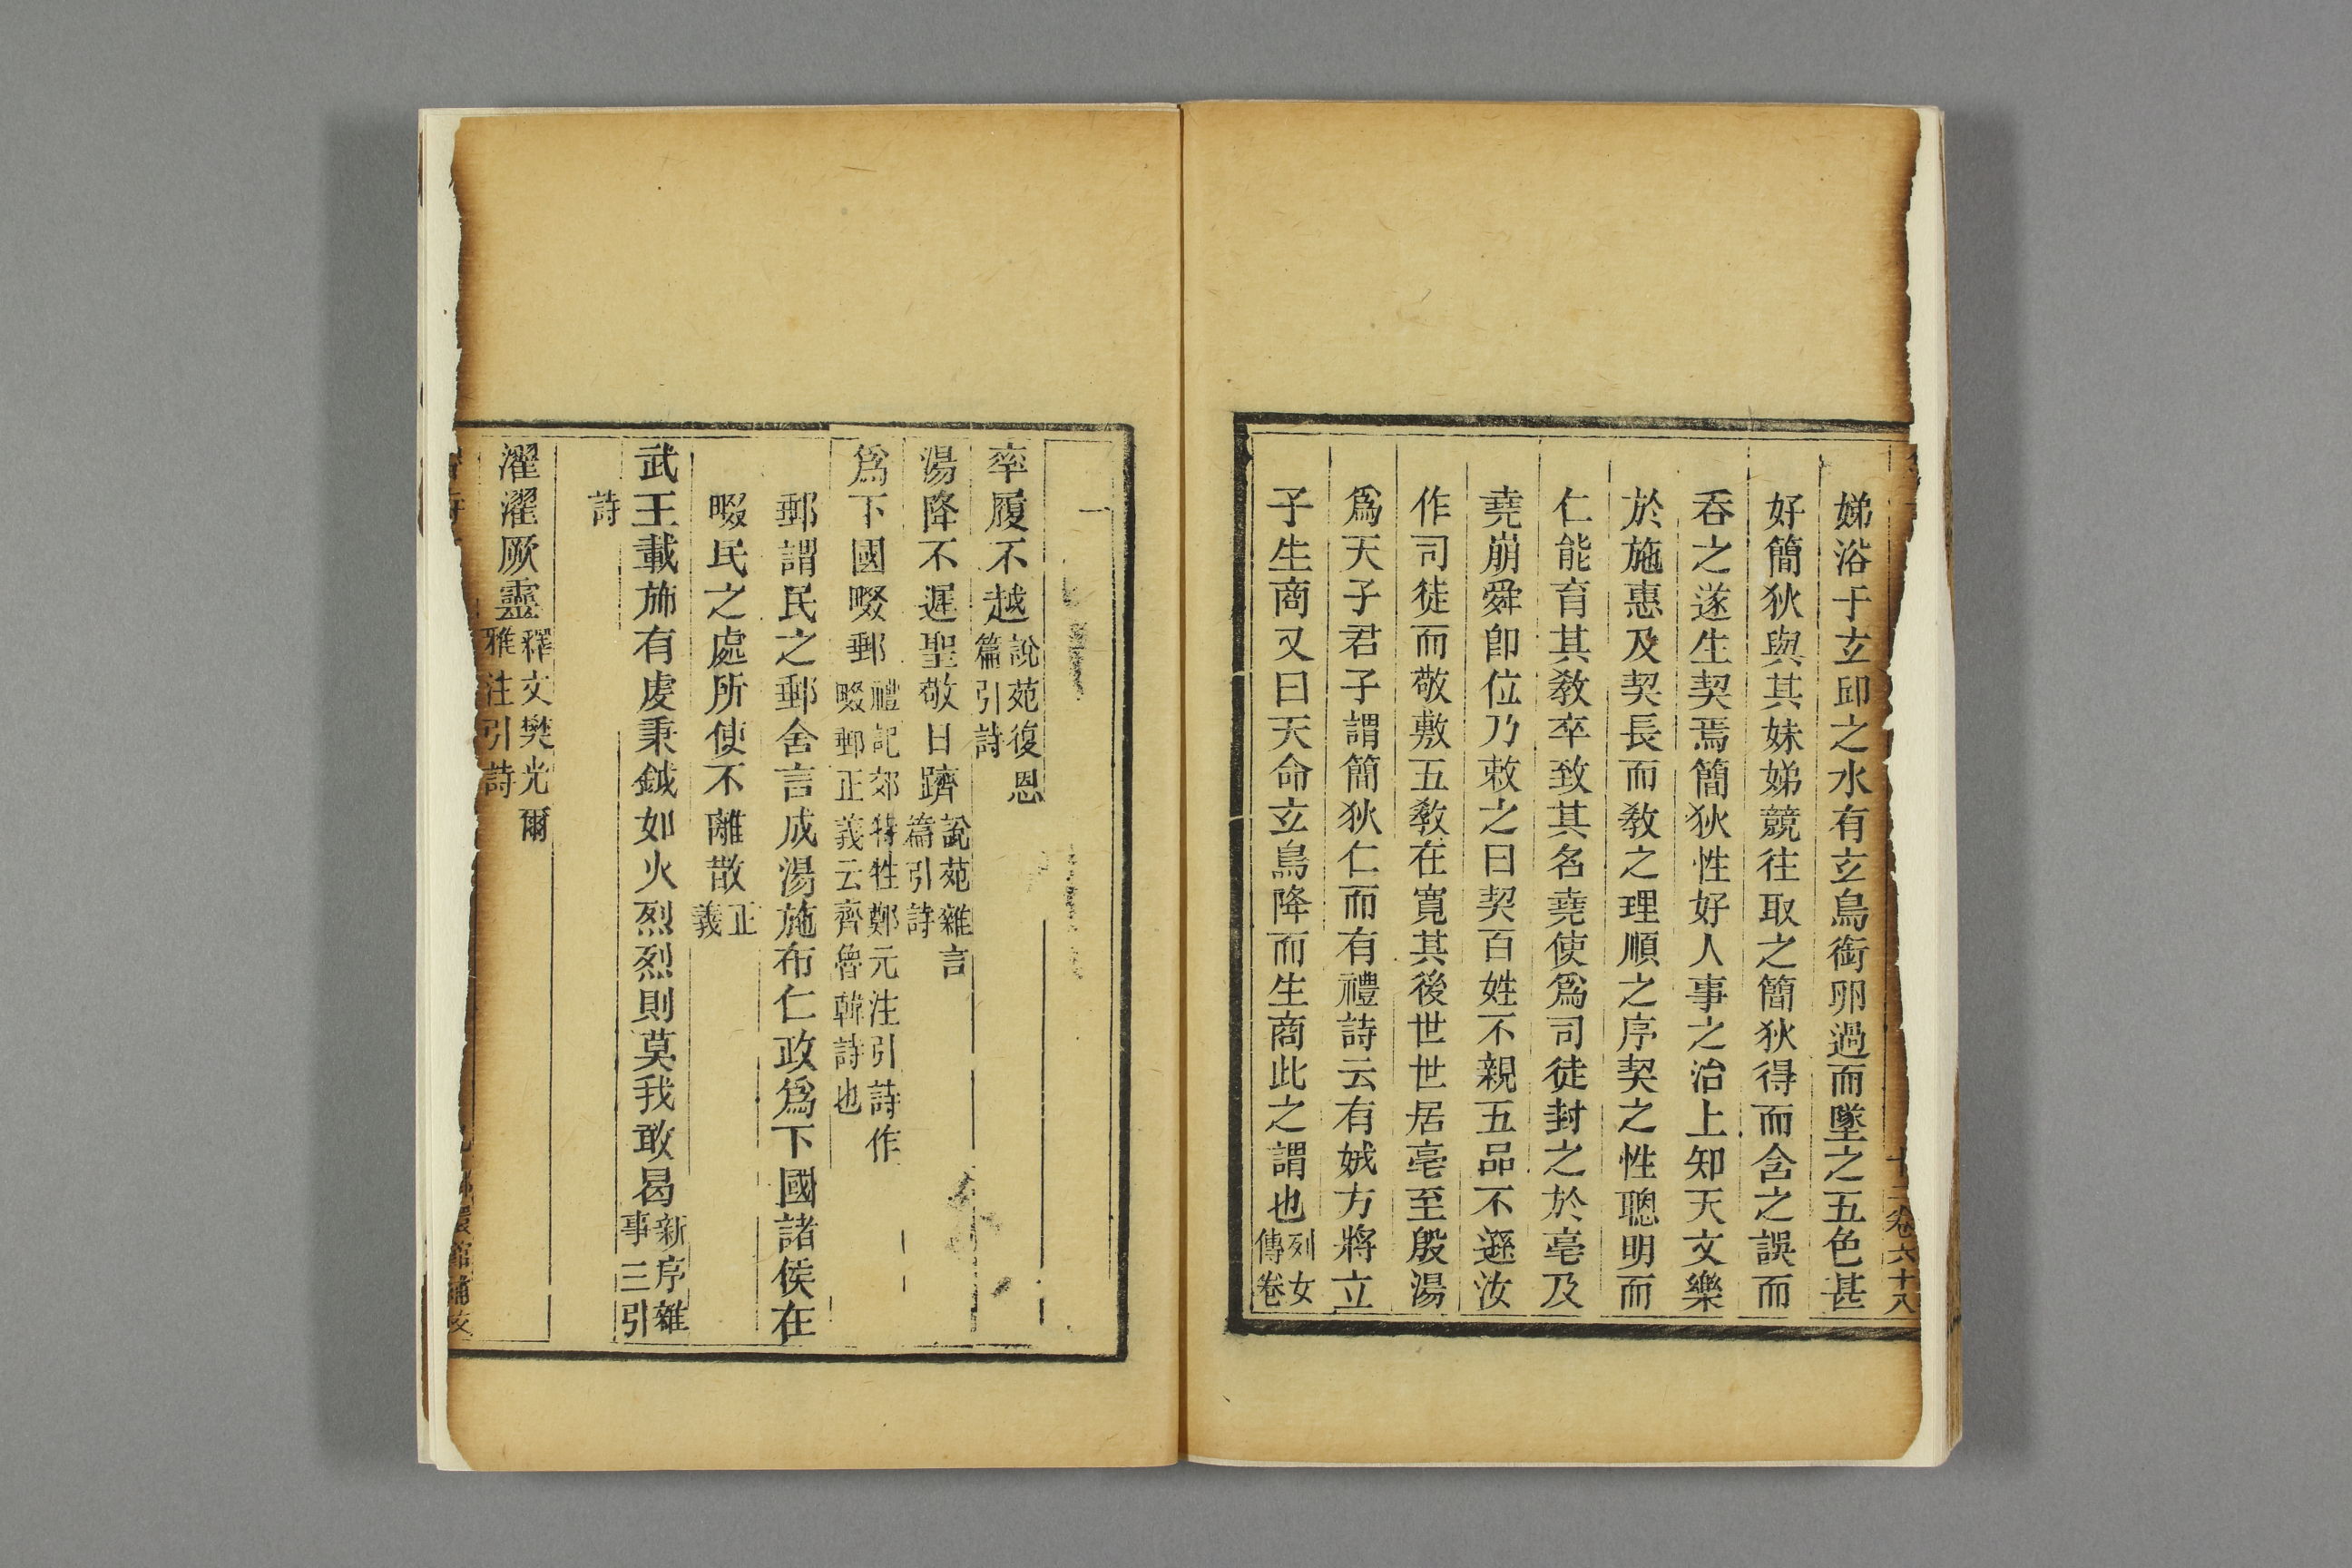 卷六十八
娣浴于玄邱之水有玄鳥銜卵過而墜之五色甚
好簡狄與其妹娣競往取之簡狄得而含之誤而
吞之遂生契焉簡狄性好人事之治上知天文樂
於施惠及契長而敎之理順之序契之性聰明而
仁能育其敎卒致其名堯使爲司徒封之於亳及
堯崩舜卽位乃敕之曰契百姓不親五品不遜汝
作司徒而敬敷五敎在寬其後世世居亳至殷湯
爲天子君子謂簡狄仁而有禮詩云有娀方將立
子生商又曰天命玄鳥降而生商此之謂也列女傳卷
一
率履不越說苑復恩篇引詩
湯降不遲聖敬日躋說苑雜言篇引詩
爲下國畷郵禮記郊特牲鄭元注引詩作畷郵正義云齊魯韓詩也
郵謂民之郵舍言成湯施布仁政爲下國諸侯在
畷民之處所使不離散正義
武王載斾有虔秉鉞如火烈烈則莫我敢曷新序雜事三引
詩
濯濯厥靈釋文樊光爾雅注引詩
嬛館補校